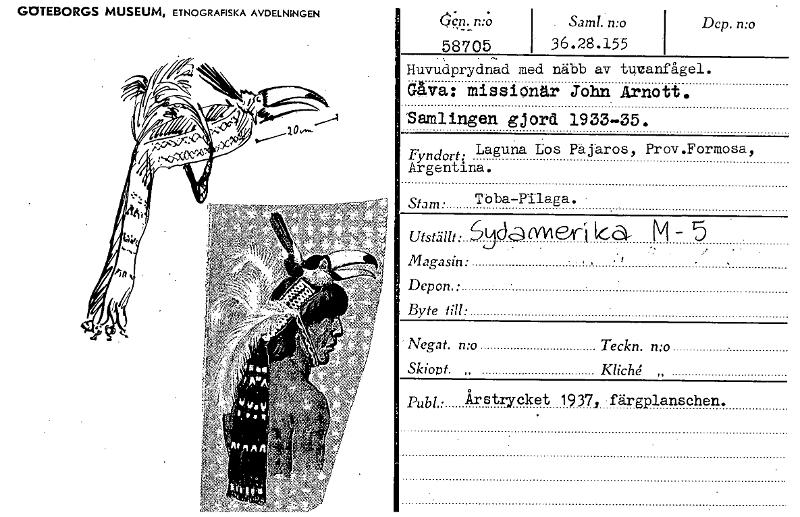 GÖTEBORGS MUSEUM, ETNOGRAFISKA AVDELNINGEN
20 cm
Gen. n:o
58705
Saml. n:o
36.28.155
Dep. n:o
Huvudprydnad med näbb av tucanfågel.
Gåva: missionär John Arnott.
Samlingen gjord 1933-35.
Fyndort: Laguna Los Pajaros, Prov.Formosa,
Argentina.
Stam: Toba-Pilaga.
Utställt: Sydamerika M-5
Magasin:
Depon.:
Byte till:
Negat. n:o Teckn. n:o
Skiopt. „ Kliché „
Publ.: Årstrycket 1937, färgplanschen.